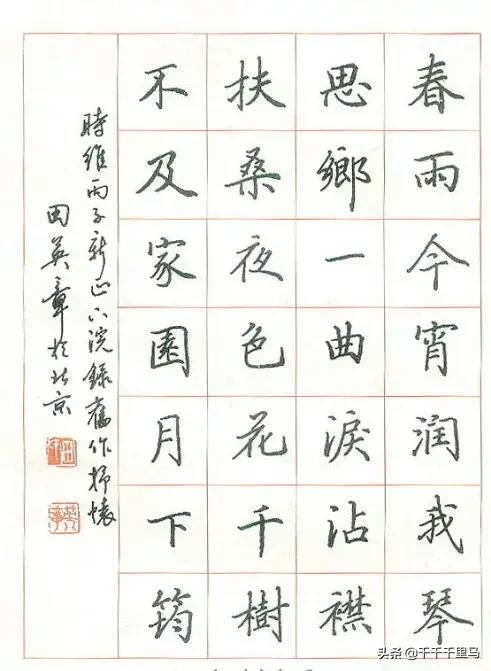 春雨今宵润我琴
思鄉一曲淚沾襟
扶桑夜色花千樹
不及家園月下筠
時維丙子新正六浣錄舊作抒懷
田英章於北京
头条 @千千千里马